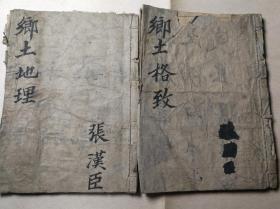 鄉土地理
張漢臣
鄉土格致